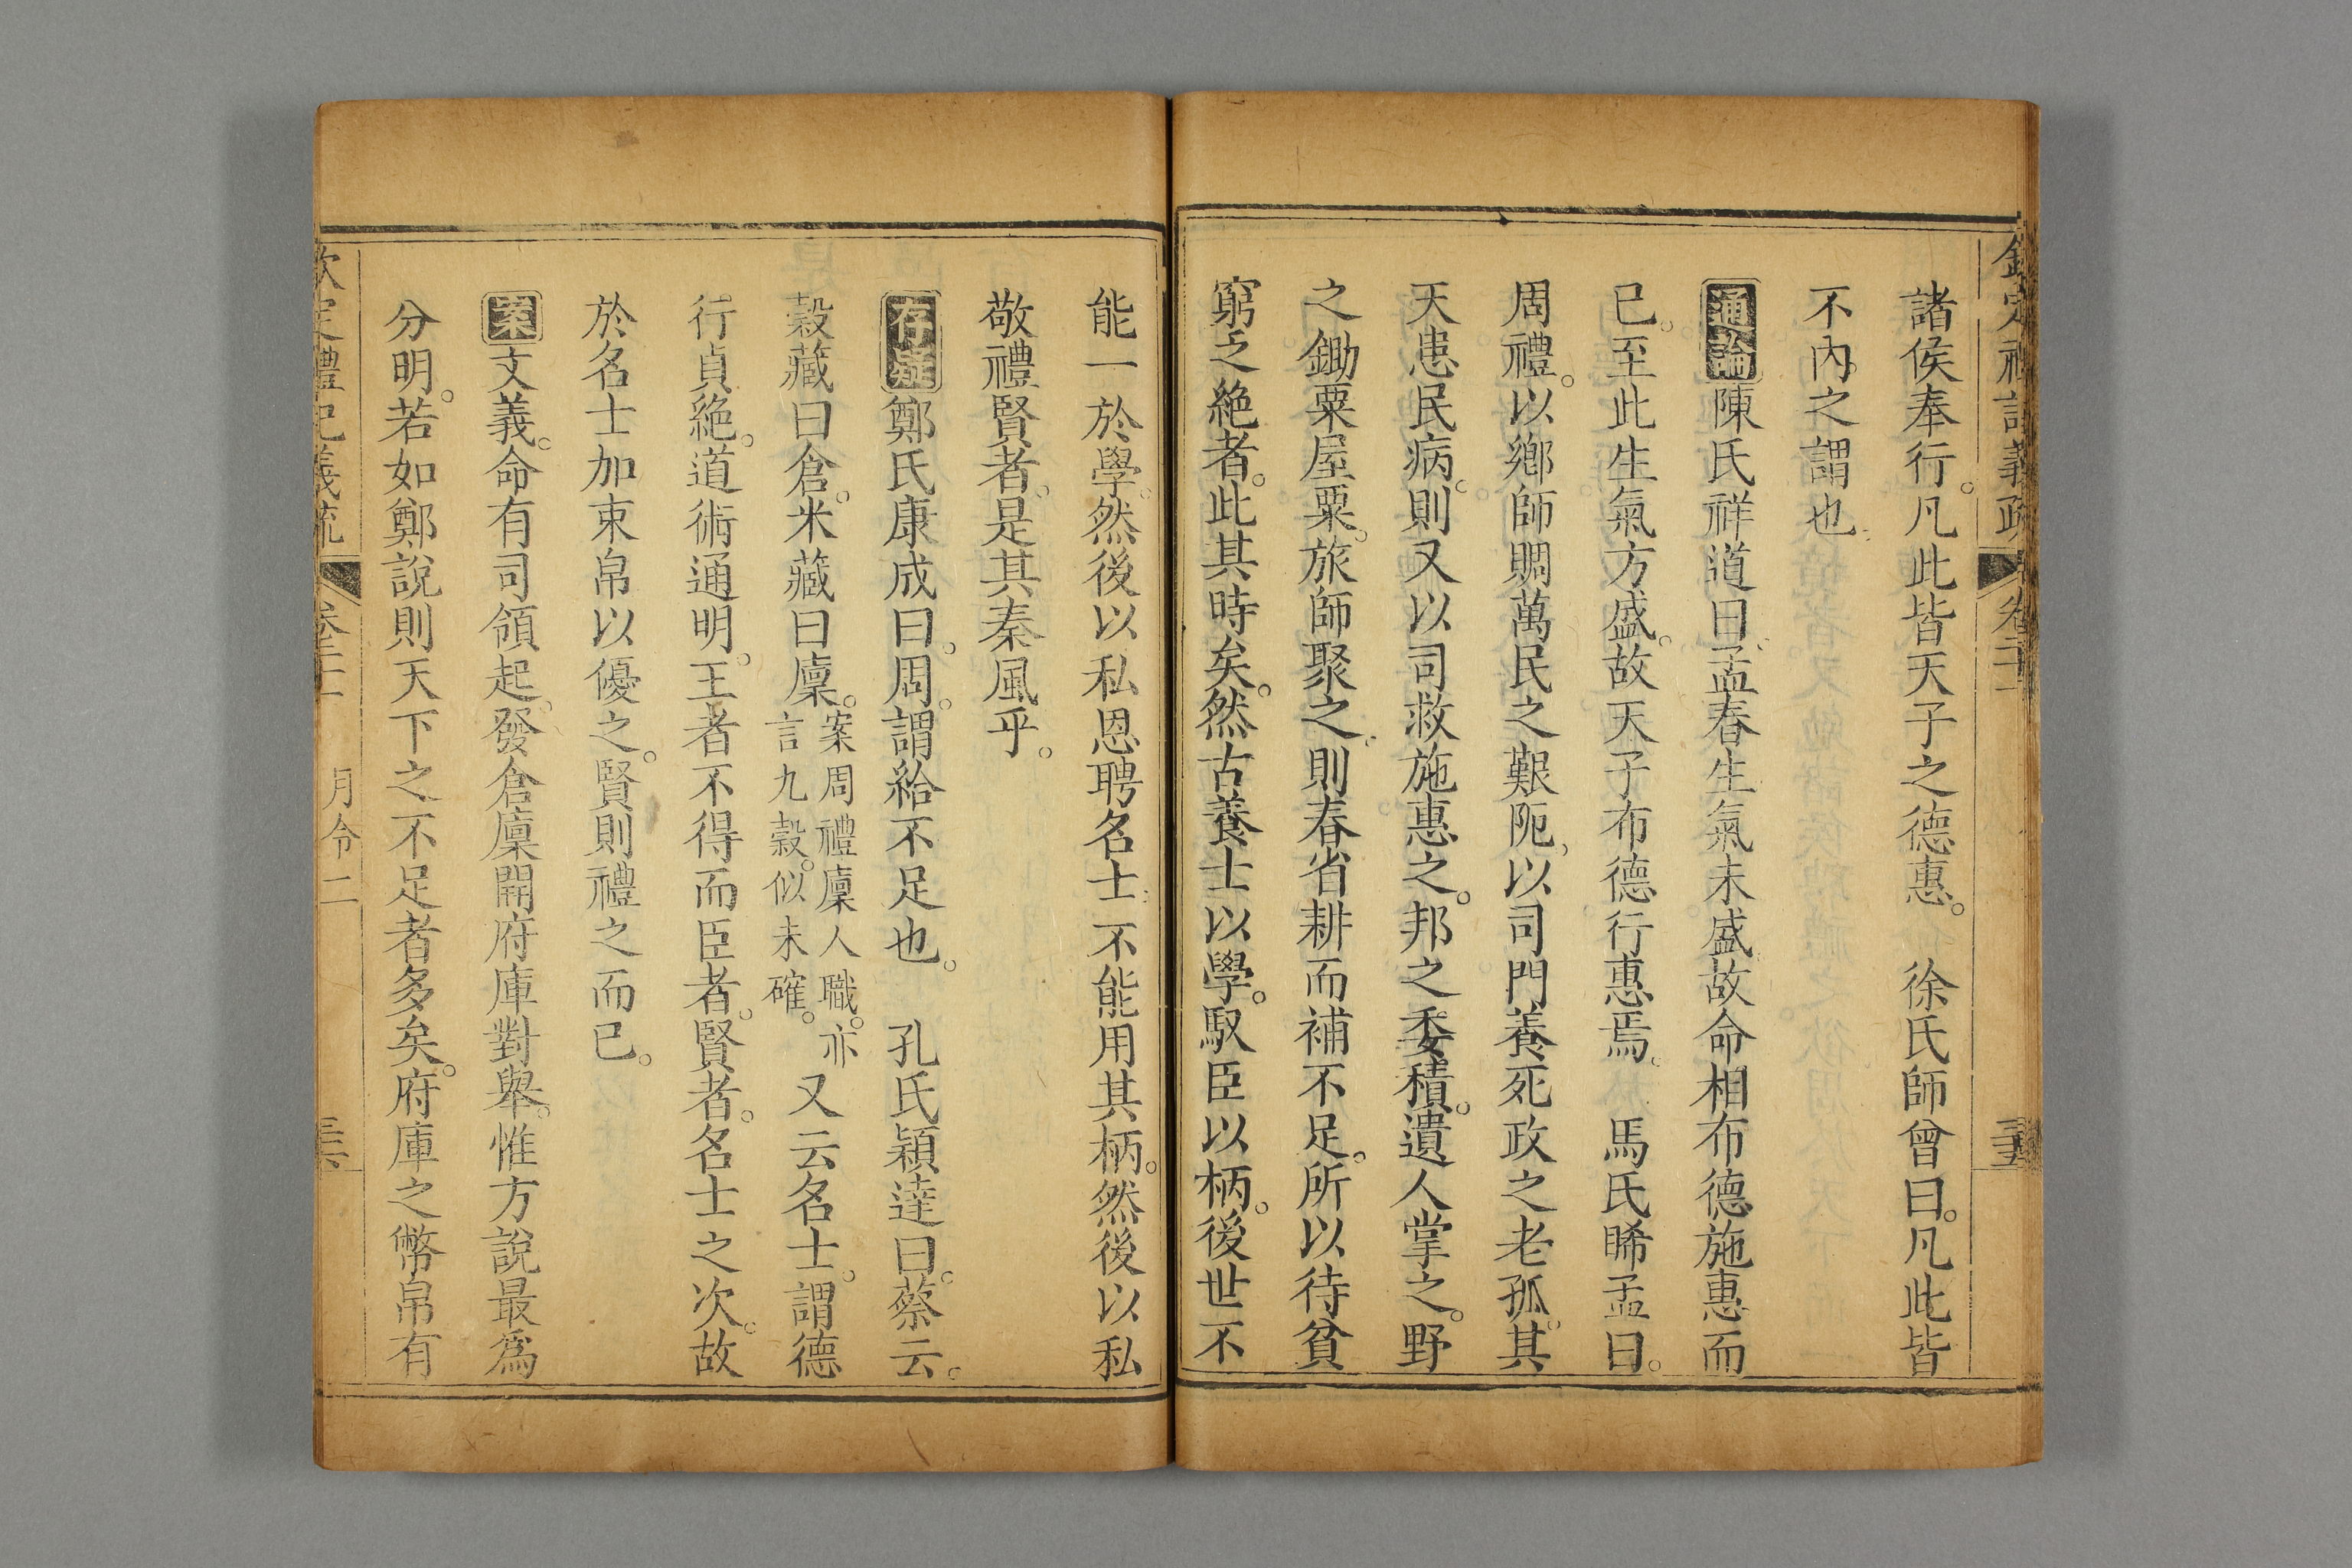 諸侯奉行。凡此皆天子之德惠。 徐氏師曾曰。凡此皆
不內之謂也。
通論陳氏祥道曰。孟春生氣未盛。故命相布德施惠而
已。至此生氣方盛。故天子布德行惠焉。 馬氏睎孟曰。
周禮。以鄉師賙萬民之艱阨。以司門養死政之老孤。其
天患民病。則又以司救施惠之。邦之委積。遺人掌之。野
之鋤粟屋粟。旅師聚之。則春省耕而補不足。所以待貧
窮乏絶者。此其時矣。然古養士以學。馭臣以柄。後世不
能一於學。然後以私恩聘名士。不能用其柄。然後以私
敬禮賢者。是其秦風乎。
存疑鄭氏康成曰。周。謂給不足也。 孔氏穎達曰。蔡云。
穀藏曰倉。米藏曰廩。案周禮廩人職。亦言九穀。似未確。又云名士。謂德
行貞絶。道術通明。王者不得而臣者。賢者。名士之次。故
於名士加束帛以優之。賢則禮之而已。
案文義。命有司領起。發倉廩開府庫對舉。惟方說最爲
分明。若如鄭說則天下之不足者多矣。府庫之幣帛有
欽定禮記義疏 卷二十一 月令二 三六
欽定禮記義疏 卷二十一 三五